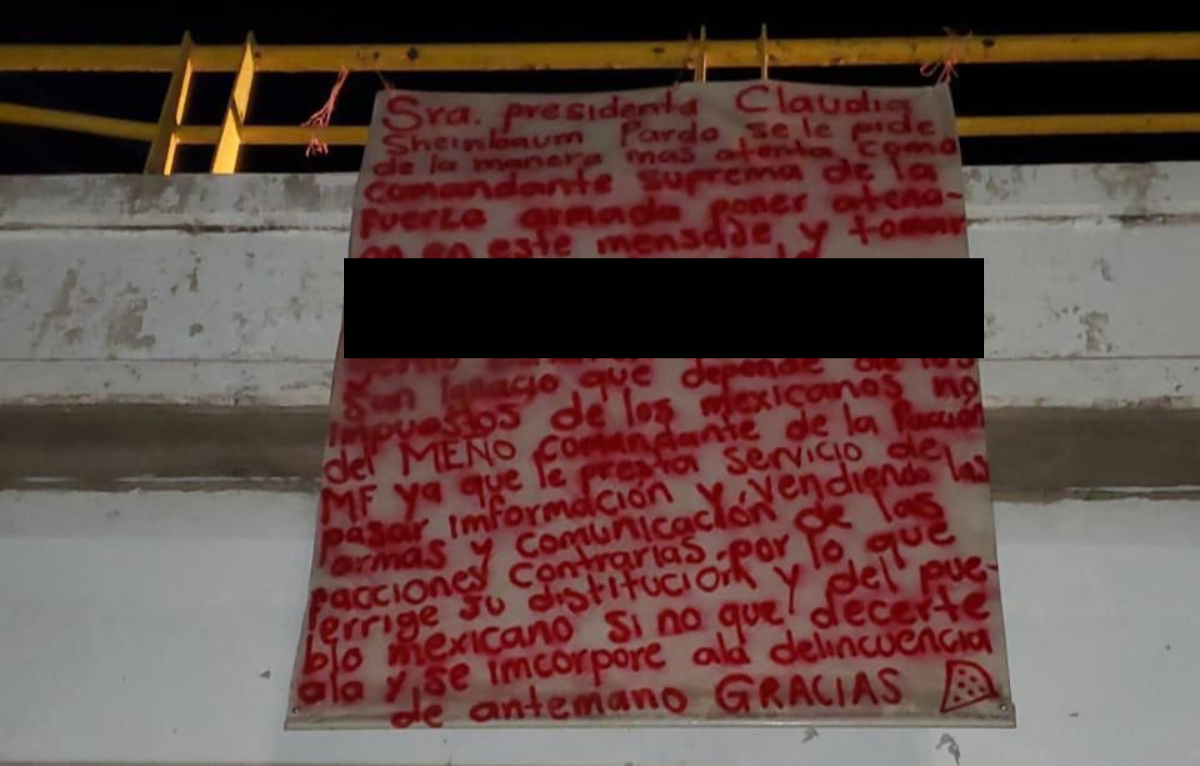 Sra. presidenta Claudia
Sheinbaum Pardo se le pide
de la manera mas atenta como
comandante suprema de la
fuerza armada poner atens-
on en este mensaje, y tomar
San Ignacio que depende de los
impuestos de los mexicanos no
del MEÑO comandante de la faccion
MF ya que le presta servicio de
pasar imformación y vendiendo las
armas y comunicación de las
facciones contrarias. por lo que
errige su distitución y del pue-
blo mexicano si no que decerte
ala y se imcorpore ala delincuencia
de antemano GRACIAS